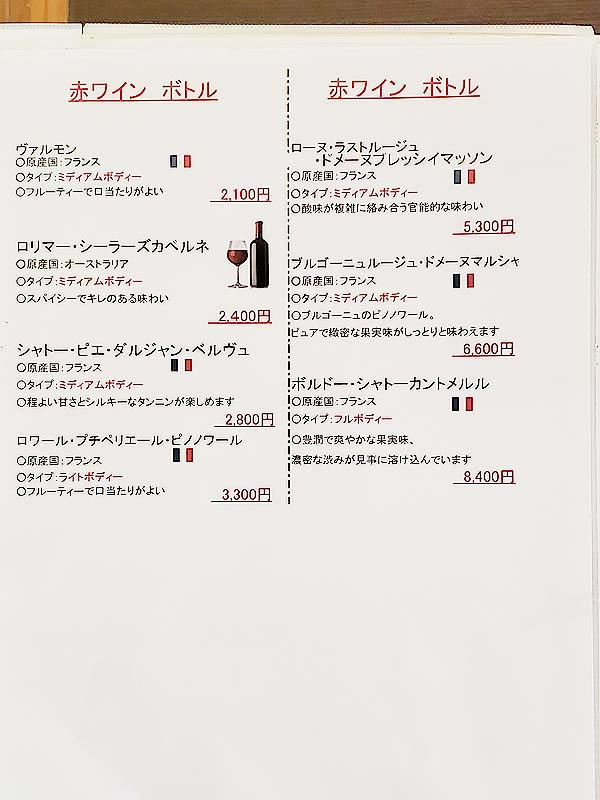 赤ワイン ボトル
ヴァルモン
○原産国：フランス
○タイプ：ミディアムボディー
○フルーティーで口当たりがよい
2,100円
ロリマー・シーラーズカベルネ
○原産国：オーストラリア
○タイプ：ミディアムボディー
○スパイシーでキレのある味わい
2,400円
シャトー・ピエ・ダルジャン・ベルヴュ
○原産国：フランス
○タイプ：ミディアムボディー
○程よい甘さとシルキーなタンニンが楽しめます
2,800円
ロワール・プチペリエール・ピノノワール
○原産国：フランス
○タイプ：ライトボディー
○フルーティーで口当たりがよい
3,300円
赤ワイン ボトル
ローヌ・ラストルージュ
・ドメーヌブレッシイマッソン
○原産国：フランス
○タイプ：ミディアムボディー
○酸味が複雑に絡み合う官能的な味わい
5,300円
ブルゴーニュルージュ・ドメーヌマルシャ
○原産国：フランス
○タイプ：ミディアムボディー
○ブルゴーニュのピノノワール。
ピュアで緻密な果実味がしっとりと味わえます
6,600円
ボルドー・シャトーカントメルル
○原産国：フランス
○タイプ：フルボディー
○豊潤で爽やかな果実味、
濃密な渋みが見事に溶け込んでいます
8,400円